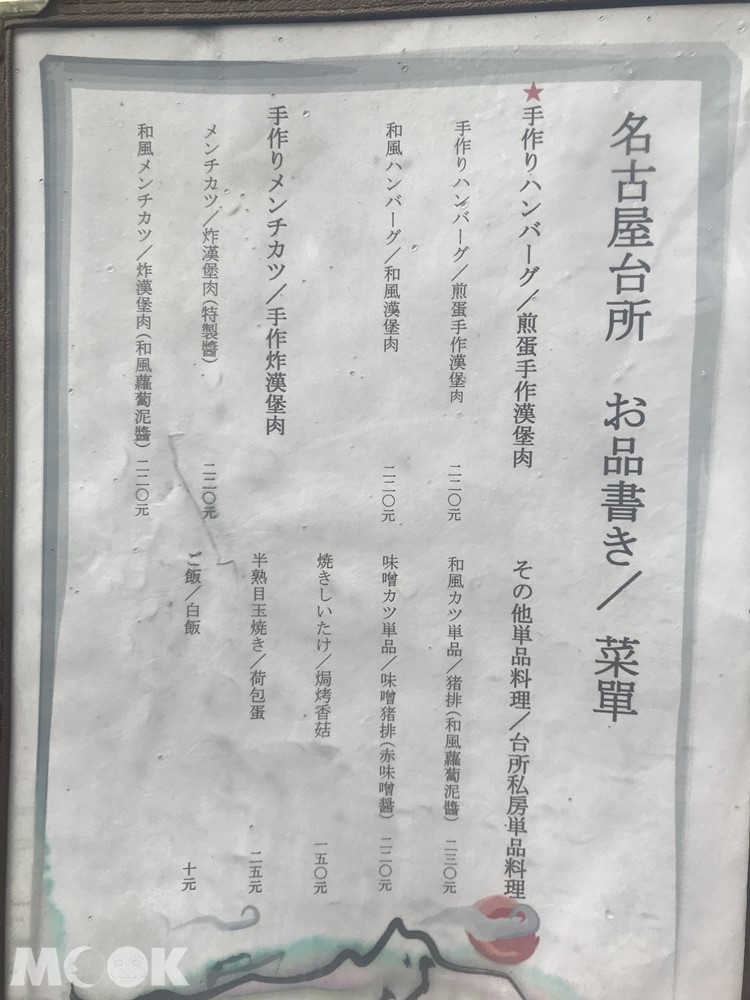 名古屋台所 お品書き／ 菜單
★手作りハンバーグ／煎蛋手作漢堡肉
手作りハンバーグ／煎蛋手作漢堡肉 二二〇元
和風ハンバーグ／和風漢堡肉 二二〇元
手作りメンチカツ／手作炸漢堡肉
メンチカツ／炸漢堡肉(特製醬) 二二〇元
和風メンチカツ／炸漢堡肉(和風蘿蔔泥醬) 二二〇元
その他単品料理／台所私房単品料理
和風カツ単品／猪排(和風蘿蔔泥醬) 二三〇元
味噌カツ単品／味噌猪排(赤味噌醤) 二二〇元
焼きしいたけ／焗烤香菇 一五〇元
半熟目玉焼き／荷包蛋 二五元
ご飯／白飯 十元
MOOK